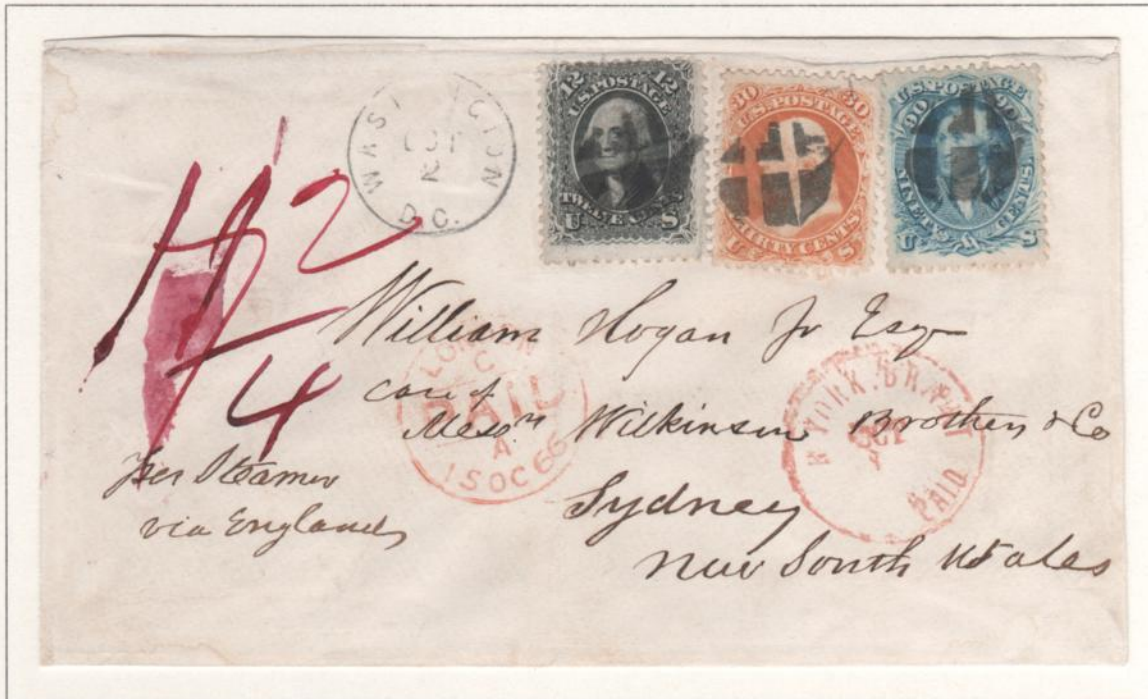 WASHINGTON
OCT
2
D.C.
12 12
U.S. POSTAGE
TWELVE CENTS
U S
30 30
U.S. POSTAGE
THIRTY CENTS
U S
U.S. POSTAGE
90 90
NINETY CENTS.
U S
112
4
William Hogan Jr Esqr
care of
Messrs Wilkinson Brothers & Co
Sydney
New South Wales
per Steamer
via England
LONDON
C
PAID
A
15 OC 66
N. YORK. BR. PKT
OCT
PAID